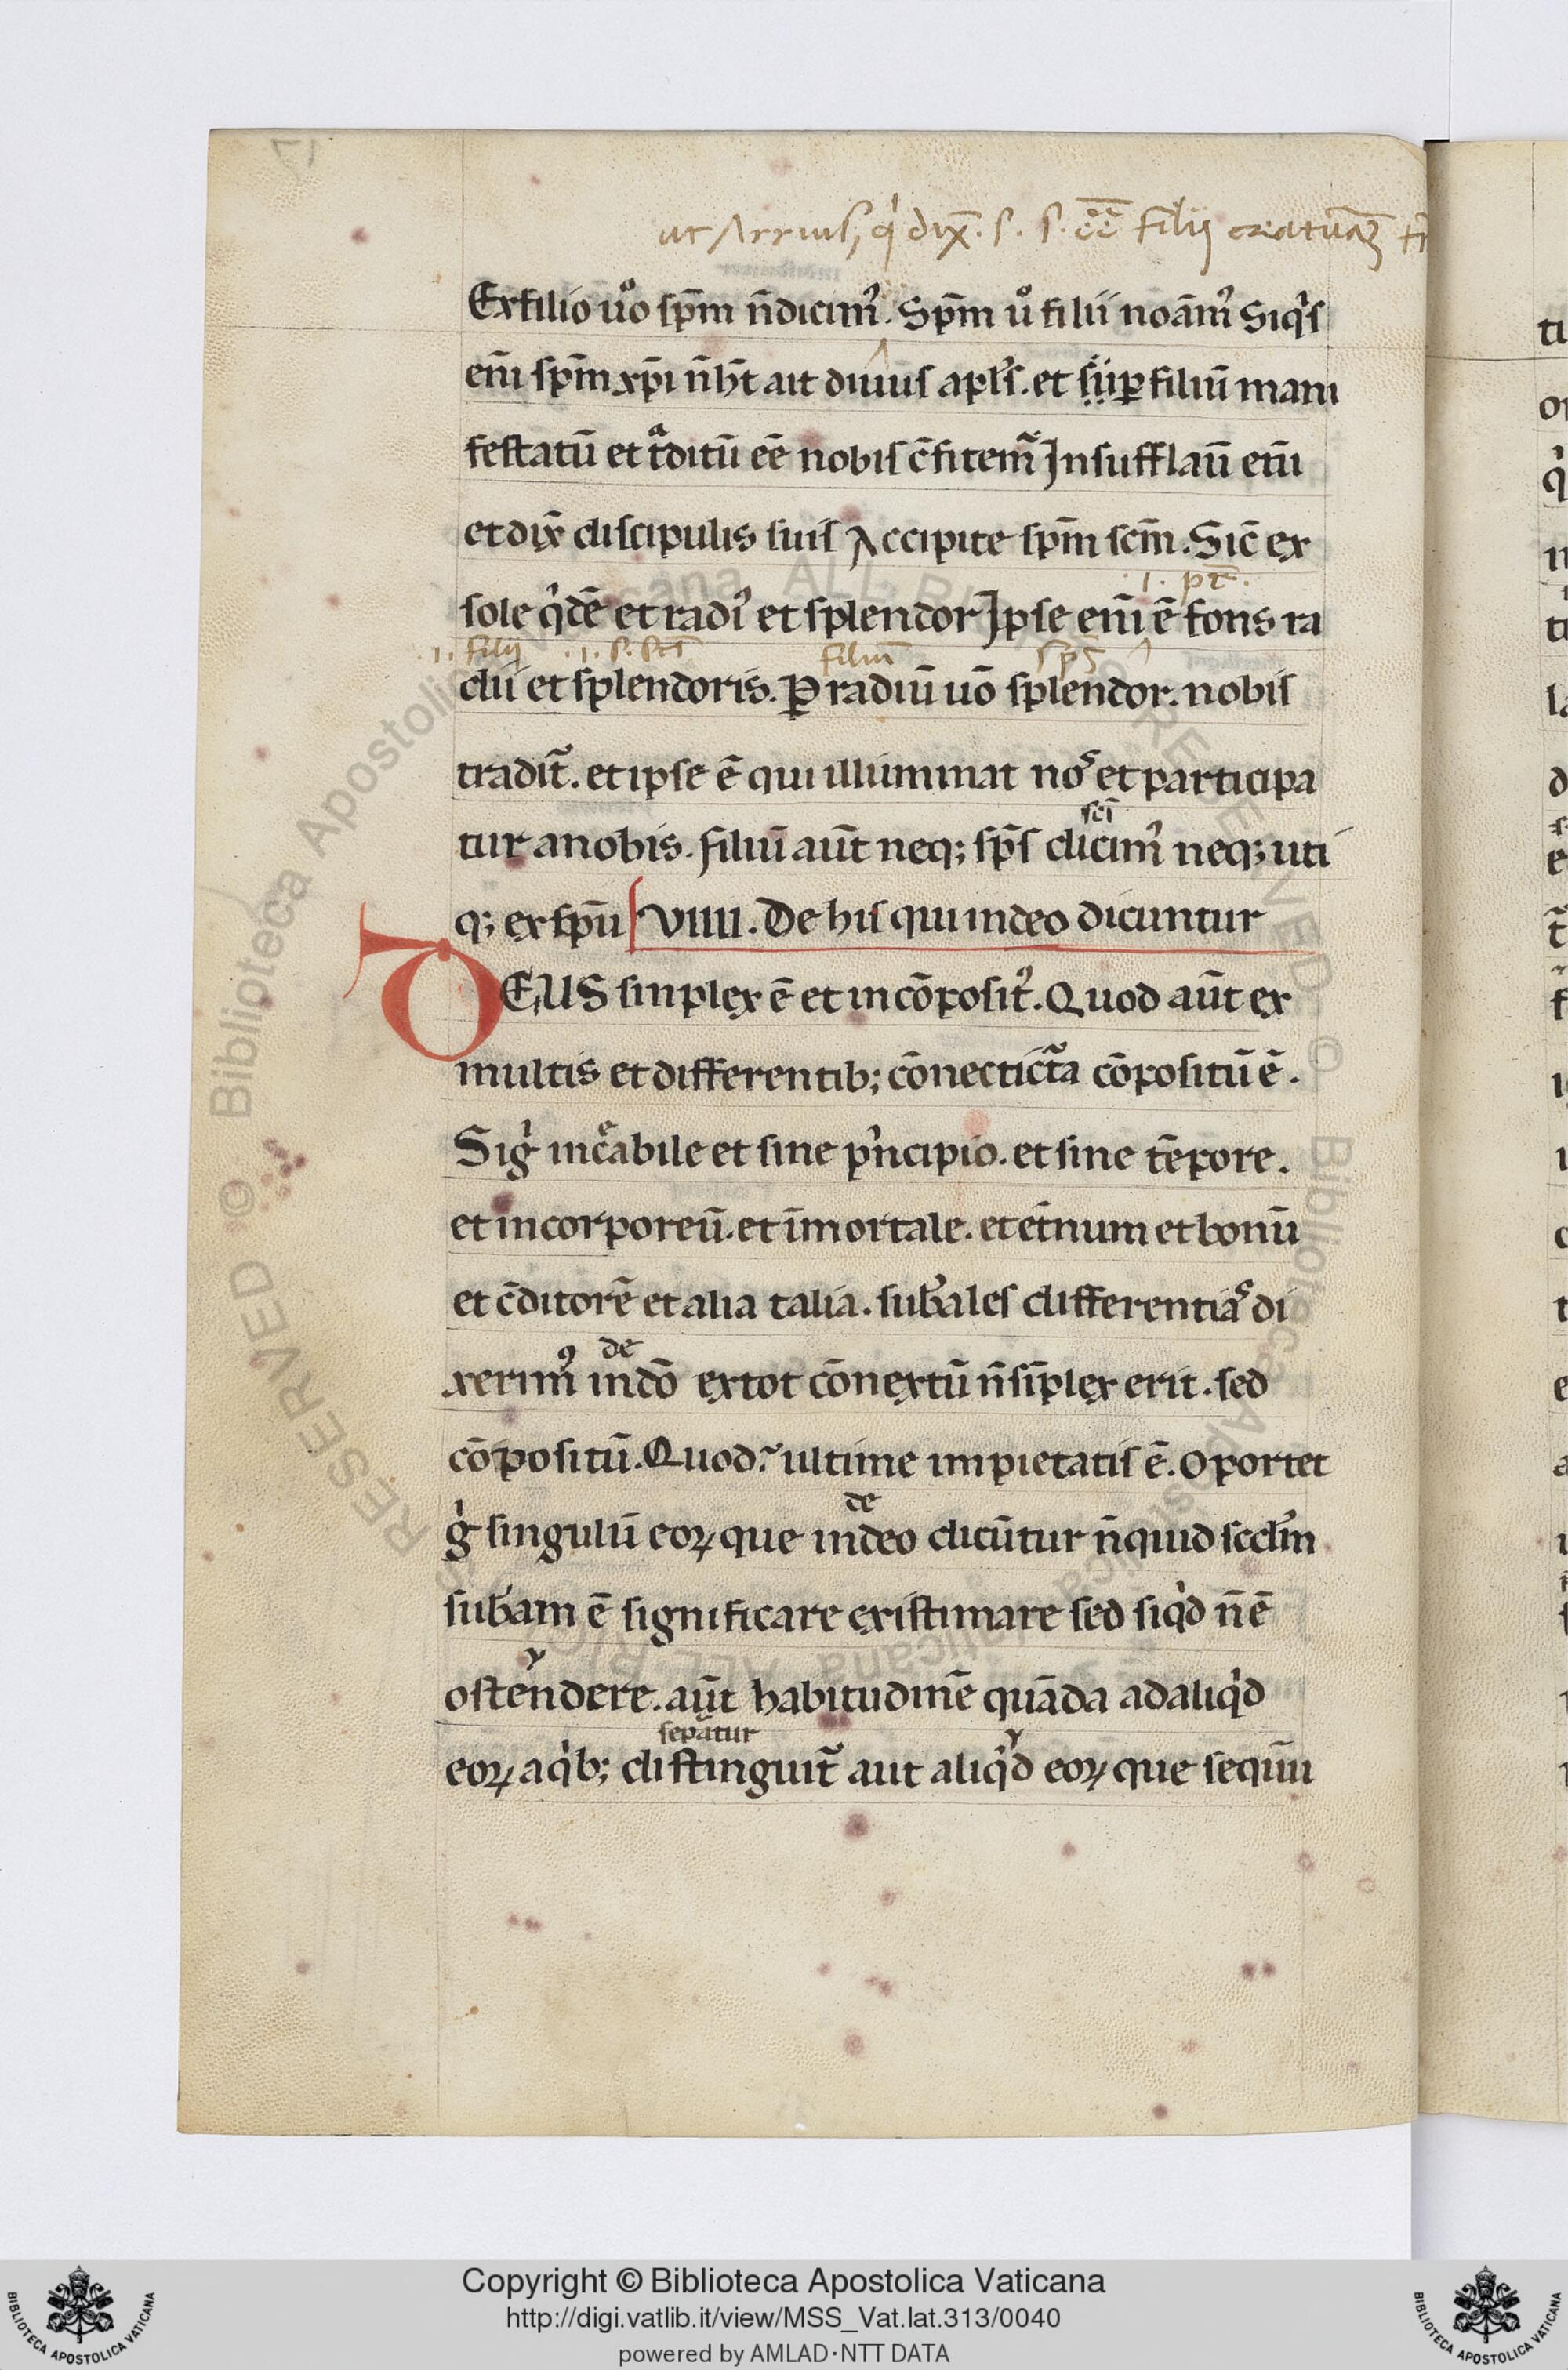 ut Arriuſ, qͥ dix̄. ſ. ſ. eē filij creaturaꝫ
Exfilio uͦo ſpm̄ n̄dicimꝰ. Spm̄ uͦ filii noāmꝰ Siqͥſ
em̄ ſpm̄ xp̄i n̄hꝫ ait diuiuſ aplſ̄. et ꝑ filiū mani
feſtatū et tᷓditū eē nobiſ c̄fitemᷓ Inſufflauͥ em̄
et dix̄ diſcipulis ſuiſ Accipite ſpm̄ ſcm̄. Sic̄ ex
.i. pꝫ.
ſole qͥdē et radiꝰ et ſplendor Ipſe em̄ ē fons ra
.i. filij .i. ſ. ſc̄i filiū ſp̄s
dii et ſplendoris. Ꝑ radiū uō ſplendor. nobiſ
tradit᷑. et ipſe ē qui illuminat noſ et participa
ſc̄i
tur anobis. filiū aūt neqꝫ ſp̄ſ dicimꝰ neqꝫ uti
qꝫ exſpū VIIII. De hiſ qui indeo dicuntur
DEUS ſinplex ē et incōpoſitꝰ. Quod aūt ex
multis et differentibꝫ; cōnecticta cōpoſitū ē.
Sigͥ incͤabile et ſine pͥncipio. et ſine tēpore.
et incorporeū. et īmortale. et et̄num et bonū
et c̄ditorē et alia talia. ſubales differentiaſ di
de
xerimꝰ indō extot cōnextū n̄ſīplex erit. ſed
cōpoſitū. Quod ultime impietatiſ ē. Oportet
de
gͥ ſingulū eoꝝ que indeo dicūtur n̄quid ſcdm̄
ſubam ē ſignificare exiſtimare ſed ſiqͥd n̄ ē
oſtendere. aūt habitudinē quāda adaliqͥd
ſepatur
eoꝝ aqͥbꝫ; diſtinguit᷑ aut aliqͥd eoꝝ que ſequūu
Copyright © Biblioteca Apostolica Vaticana
http://digi.vatlib.it/view/MSS_Vat.lat.313/0040
powered by AMLAD·NTT DATA
BIBLIOTECA APOSTOLICA VATICANA
BIBLIOTECA APOSTOLICA VATICANA